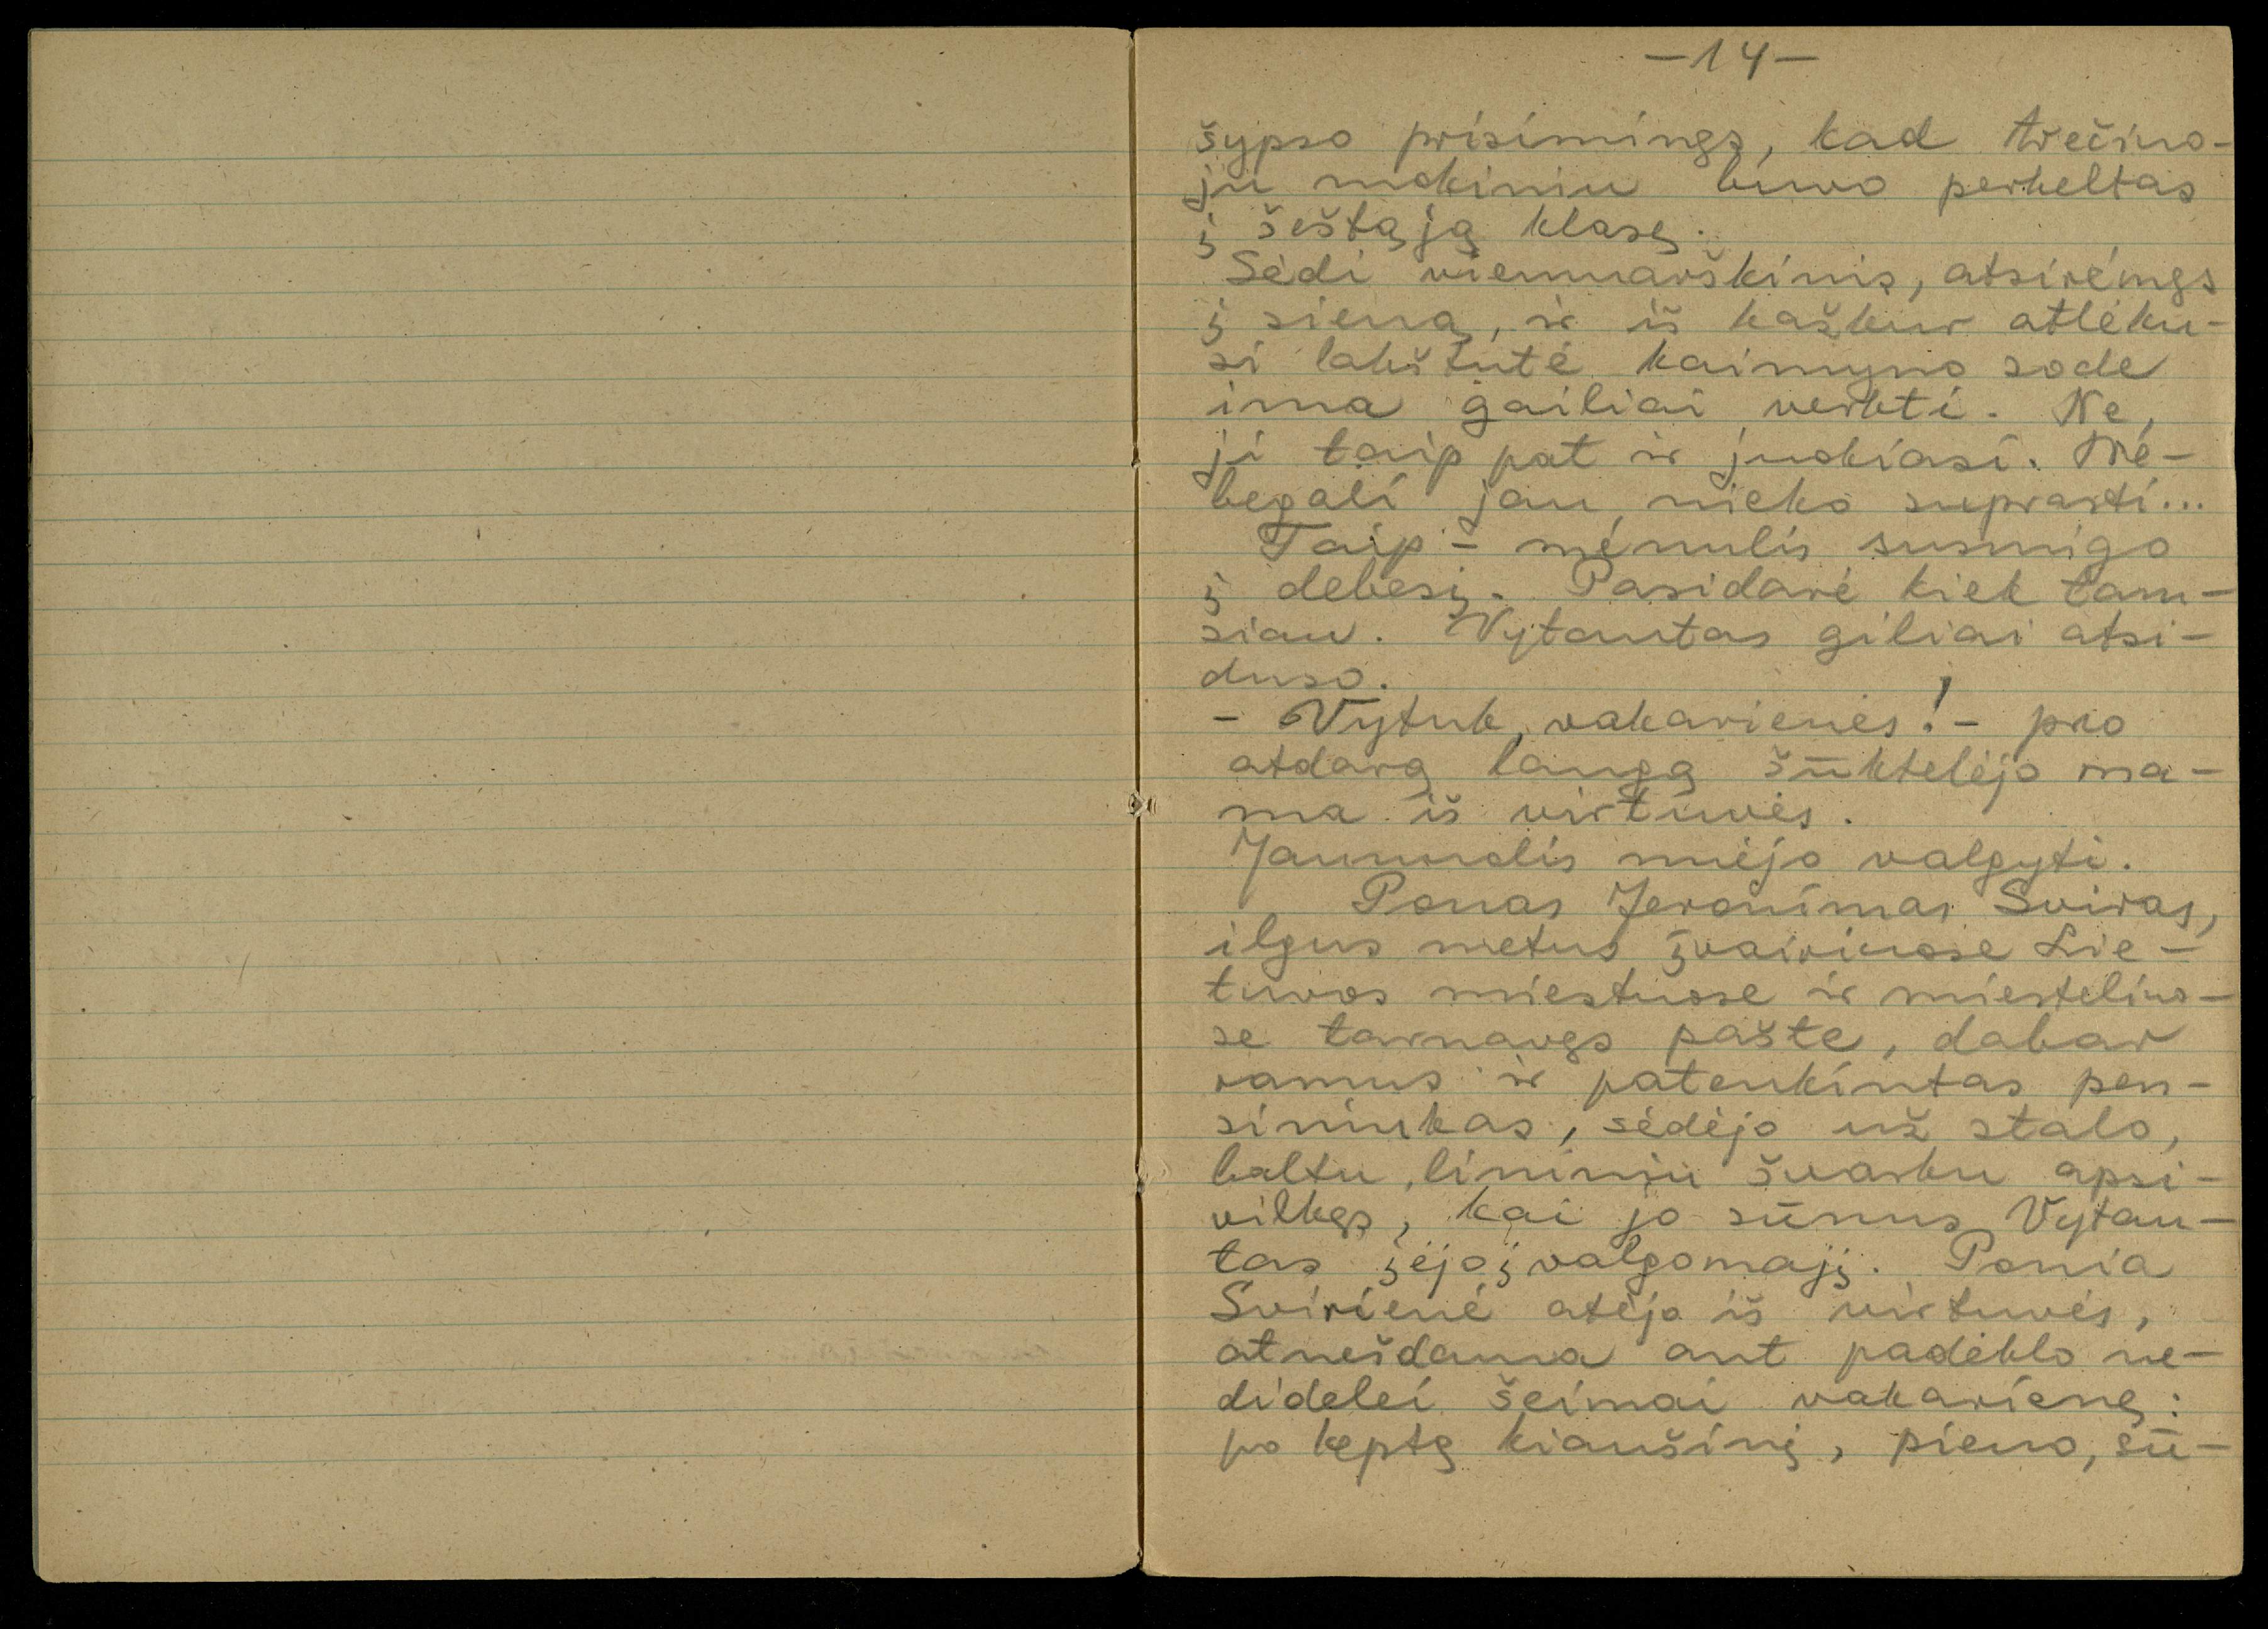 —14—
šypso prisiminęs, kad trečiuo-
ju mokiniu buvo perkeltas
į šeštąją klasę.
Sėdi vienmarškinis, atsirėmęs
į sieną, ir iš kažkur atlėku-
si lakštutė kaimyno sode
ima gailiai verkti. Ne,
ji taip pat ir juokiasi. Ne-
begali jau nieko suprasti...
Taip – mėnulis susmigo
į debesį. Pasidarė kiek tam-
siau. Vytautas giliai atsi-
duso.
– Vytuk, vakarienės! – pro
atdarą langą šūktelėjo ma-
ma iš virtuvės.
Jaunuolis nuėjo valgyti.
Ponas Jeronimas Sviras,
ilgus metus įvairiuose Lie-
tuvos miestuose ir miesteliuo-
se tarnavęs pašte, dabar
ramus ir patenkintas pen-
sininkas, sėdėjo už stalo,
baltu, lininiu švarku apsi-
vilkęs, kai jo sūnus Vytau-
tas įėjo į valgomąjį. Ponia
Svirienė atėjo iš virtuvės,
atnešdama ant padėklo ne-
didelei šeimai vakarienę:
po keptą kiaušinį, pieno, sū-